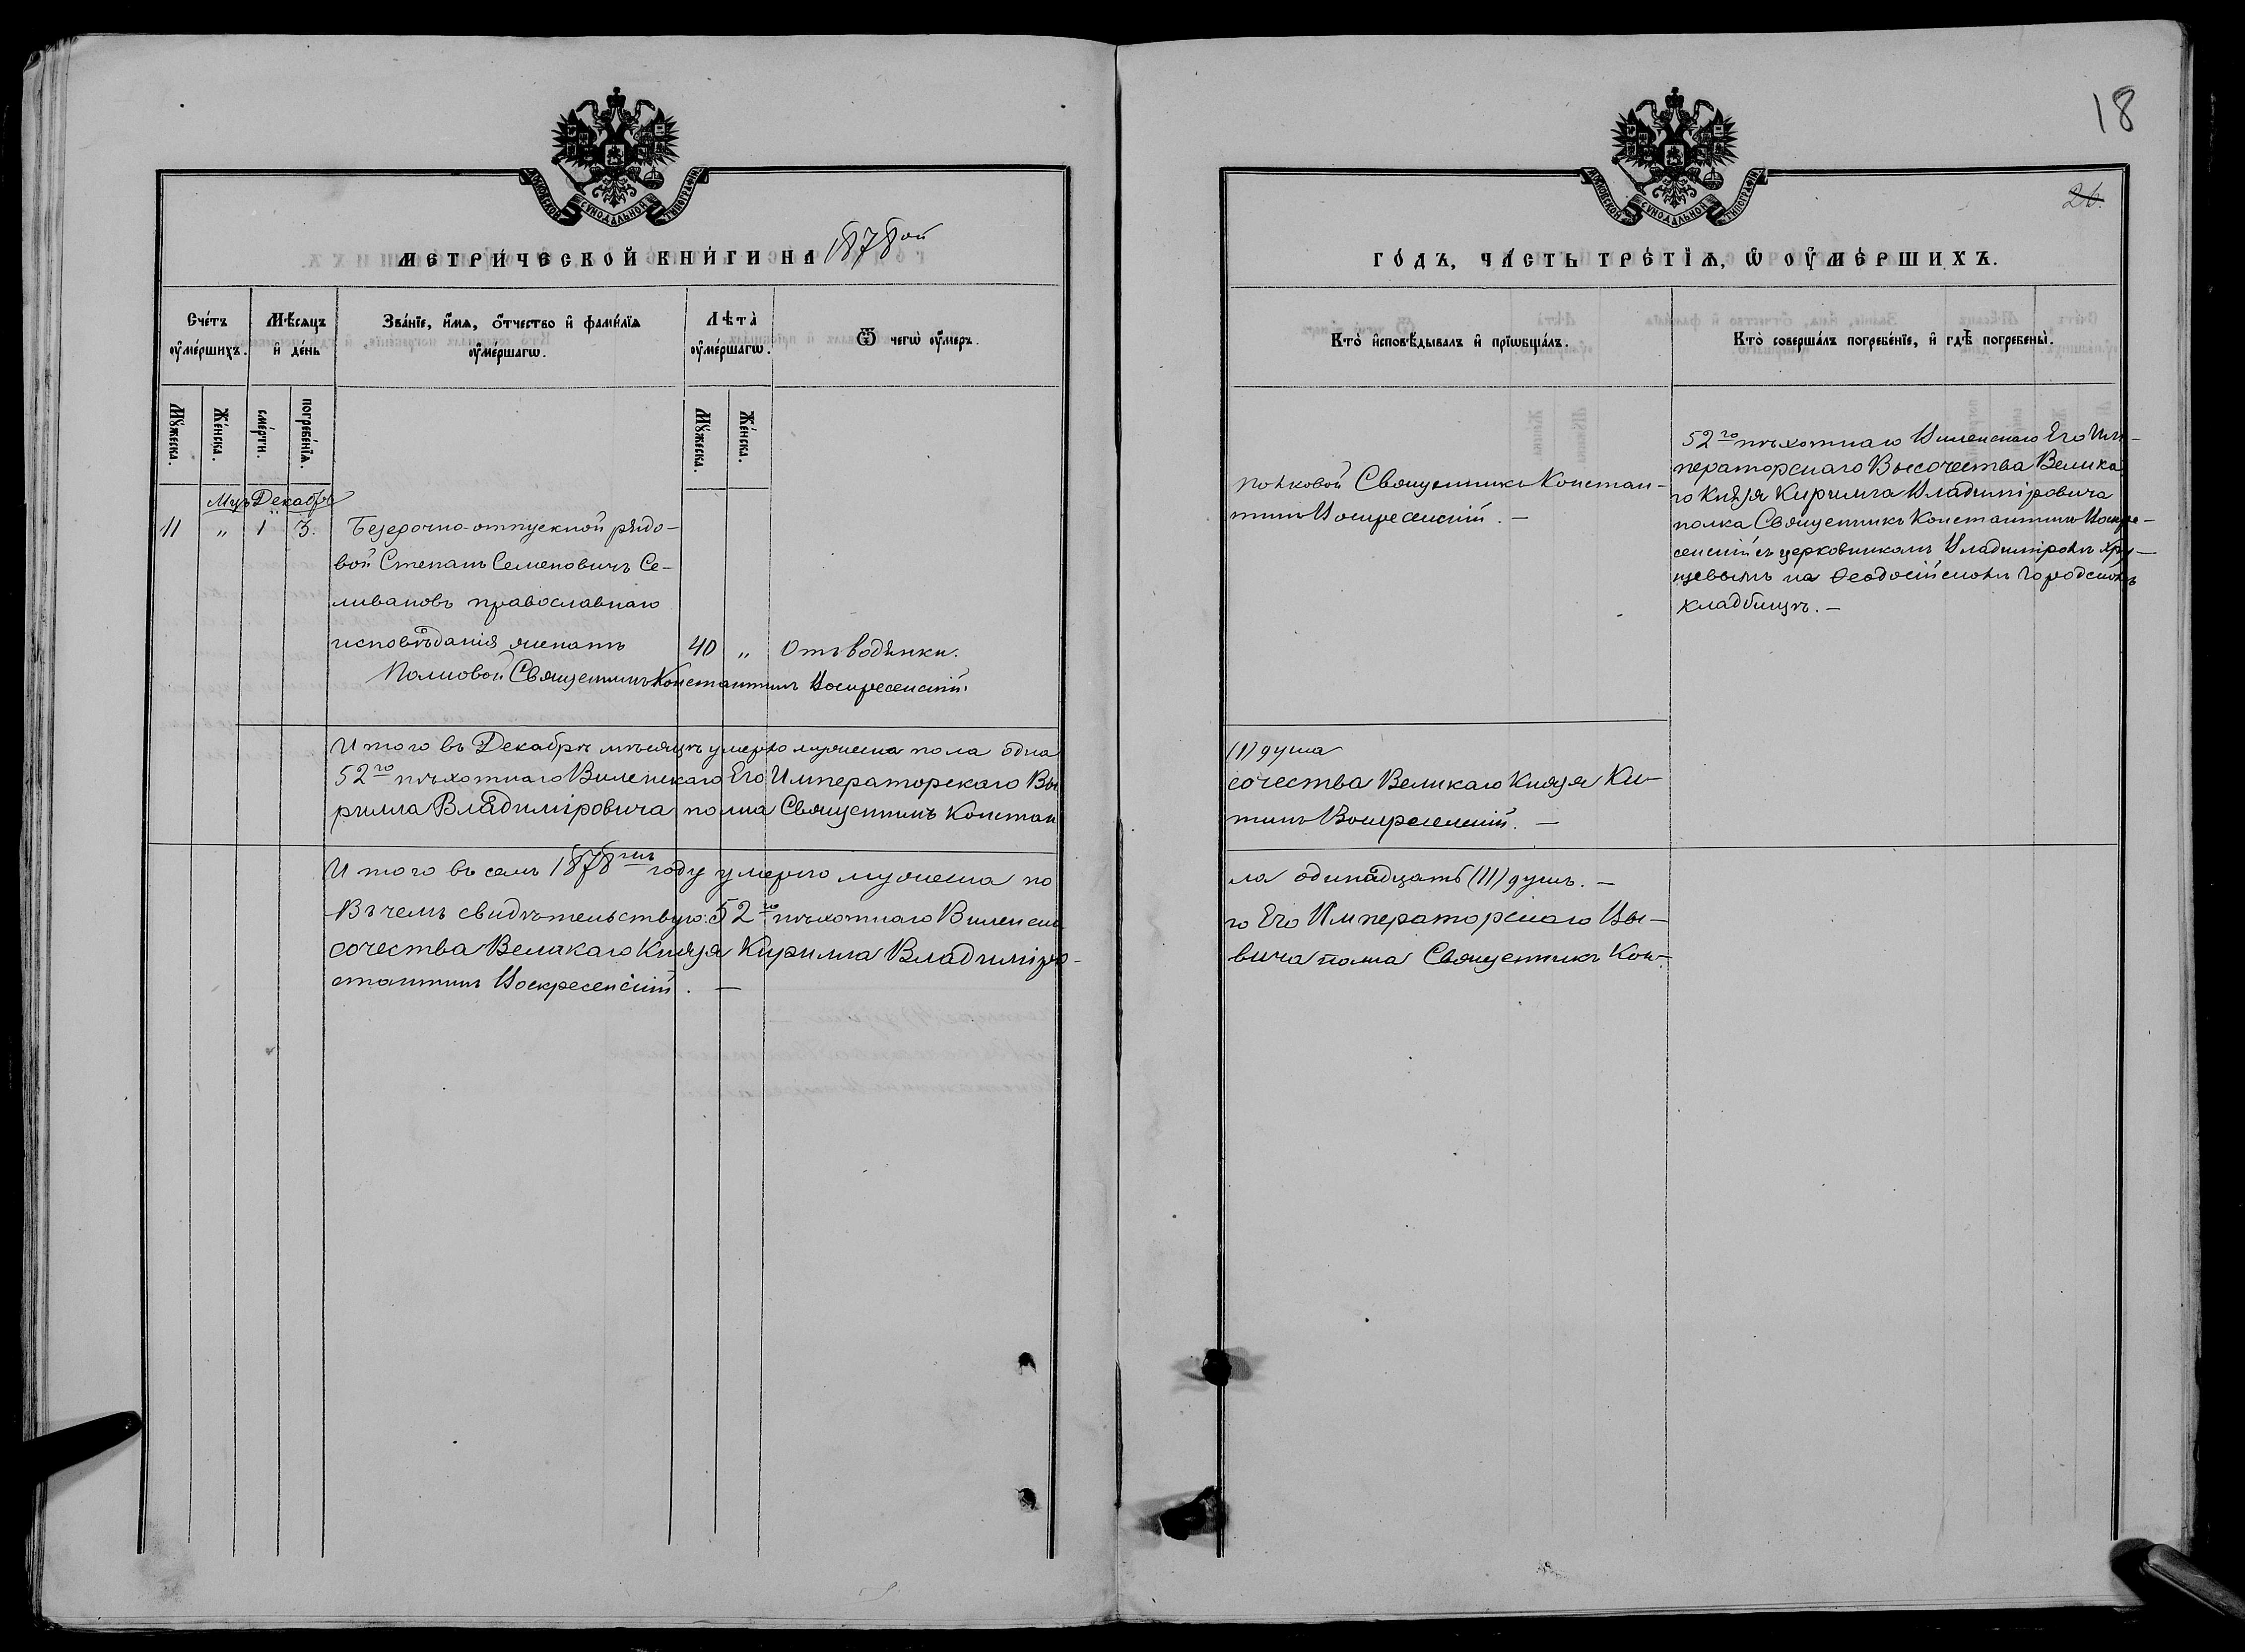 18
26.
МОСКОВСКОЙ СѴНОДАЛЬНОЙ ТИПОГРАФІИ
МЕТРИ́ЧЕСКОЙ КНИ́ГИ НА 1878ой
Сче́тъ оу҆ме́ршихъ.
Мѣ́сяцъ и҆ де́нь
Зва́нїе, и҆́мя, ѻ҆́тчество и҆ фами́лїя оу҆ме́ршагѡ.
Лѣта̀ оу҆ме́ршагѡ.
Ѿ чегѡ̀ оу҆́меръ.
Мꙋ́жеска.
Же́нска.
сме́рти.
погребе́нїѧ.
Мꙋ́жеска.
Же́нска.
Мцъ Декабрь
11 " 1 3. Безсрочно-отпускной рядо-
вой Степанъ Семеновичъ Се-
ливановъ православнаго
исповѣданія женатъ 40 " Отъ водянки.
Полковой Священникъ Константинъ Воскресенскій.
Итого въ Декабрѣ мѣсяцѣ умерло мужеска пола одна
52го пѣхотнаго Виленскаго Его Императорскаго Вы
рилла Владиміровича полка Священникъ Констан
Итого въ семъ 1878мъ году умерло мужеска по
Въ чемъ свидѣтельствую: 52го пѣхотнаго Виленска
сочества Великаго Князя Кирилла Владиміро-
стантинъ Воскресенскій. —
МОСКОВСКОЙ СѴНОДАЛЬНОЙ ТИПОГРАФІИ
ГО́ДЪ, ЧА́СТЬ ТРЕ́ТЇѦ, Ѡ ОУ҆МЕ́РШИХЪ.
Кто̀ и҆сповѣ́дывалъ и҆ прїѡбща́лъ.
Кто̀ соверша́лъ погребе́нїе, и҆ гдѣ̀ погребены̀.
полковой Священникъ Констан-
тинъ Воскресенскій. —
52го пѣхотнаго Виленскаго Его Им-
ператорскаго Высочества Велика
го Князя Кирилла Владиміровича
полка Священникъ Константинъ Воскре-
сенскій съ церковникомъ Владиміромъ Хру-
щевымъ на Ѳеодосійскомъ городскомъ
кладбищѣ. —
(1) душа
сочества Великаго Князя Ки-
тинъ Воскресенскій. —
ла одинадцать (11) душъ. —
го Его Императорскаго Вы-
вича полка Священникъ Кон-